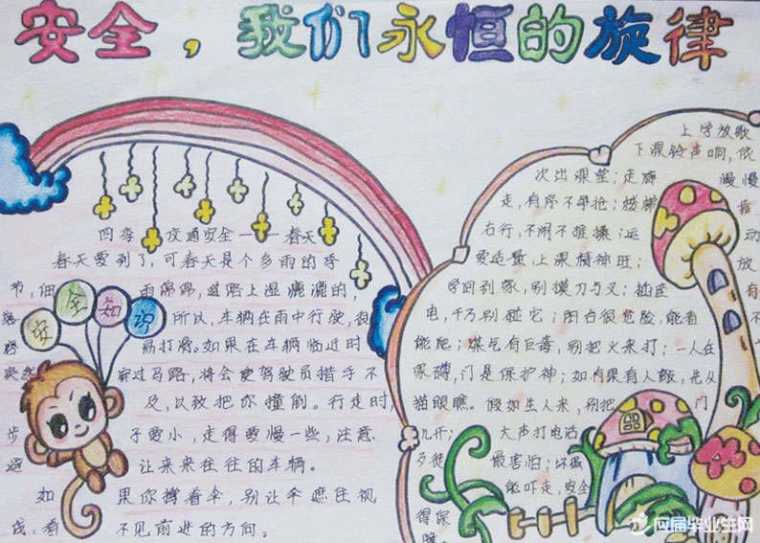 安全，我们永恒的旋律
四季交通安全——春天
春天要到了，可春天是个多雨的季
节，细雨绵绵，道路上湿漉漉的，
所以，车辆在雨中行驶，很
易打滑。如果在车辆临近时
突然穿过马路，将会使驾驶员措手不
及，以致把你撞倒。行走时，
步子要小，走得要慢一些，注意
避让来来往往的车辆。
如果你撑着伞，别让伞遮住视
线，看不见前进的方向。
安全知识
上学放歌
下课铃声响，依
次出课堂；走廊慢慢
走，有序不争抢；楼梯靠
右行，不闹不推攘；运动
要适量，上课精神旺；放
学回到家，别摸刀与叉；插座有
电，千万别碰它；阳台很危险，能看
能爬；煤气有巨毒，别把火来打；一人在
家嘛，门是保护神；如有果有人敲，先从
猫眼瞧。假如生人来，别把门
儿开；大声打电话
歹徒最害怕；坏蛋
能吓走，安全
得保
障。
应届毕业生网